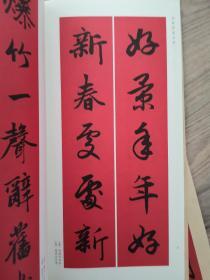 好景年年好
新春處處新
爆竹一聲辭舊